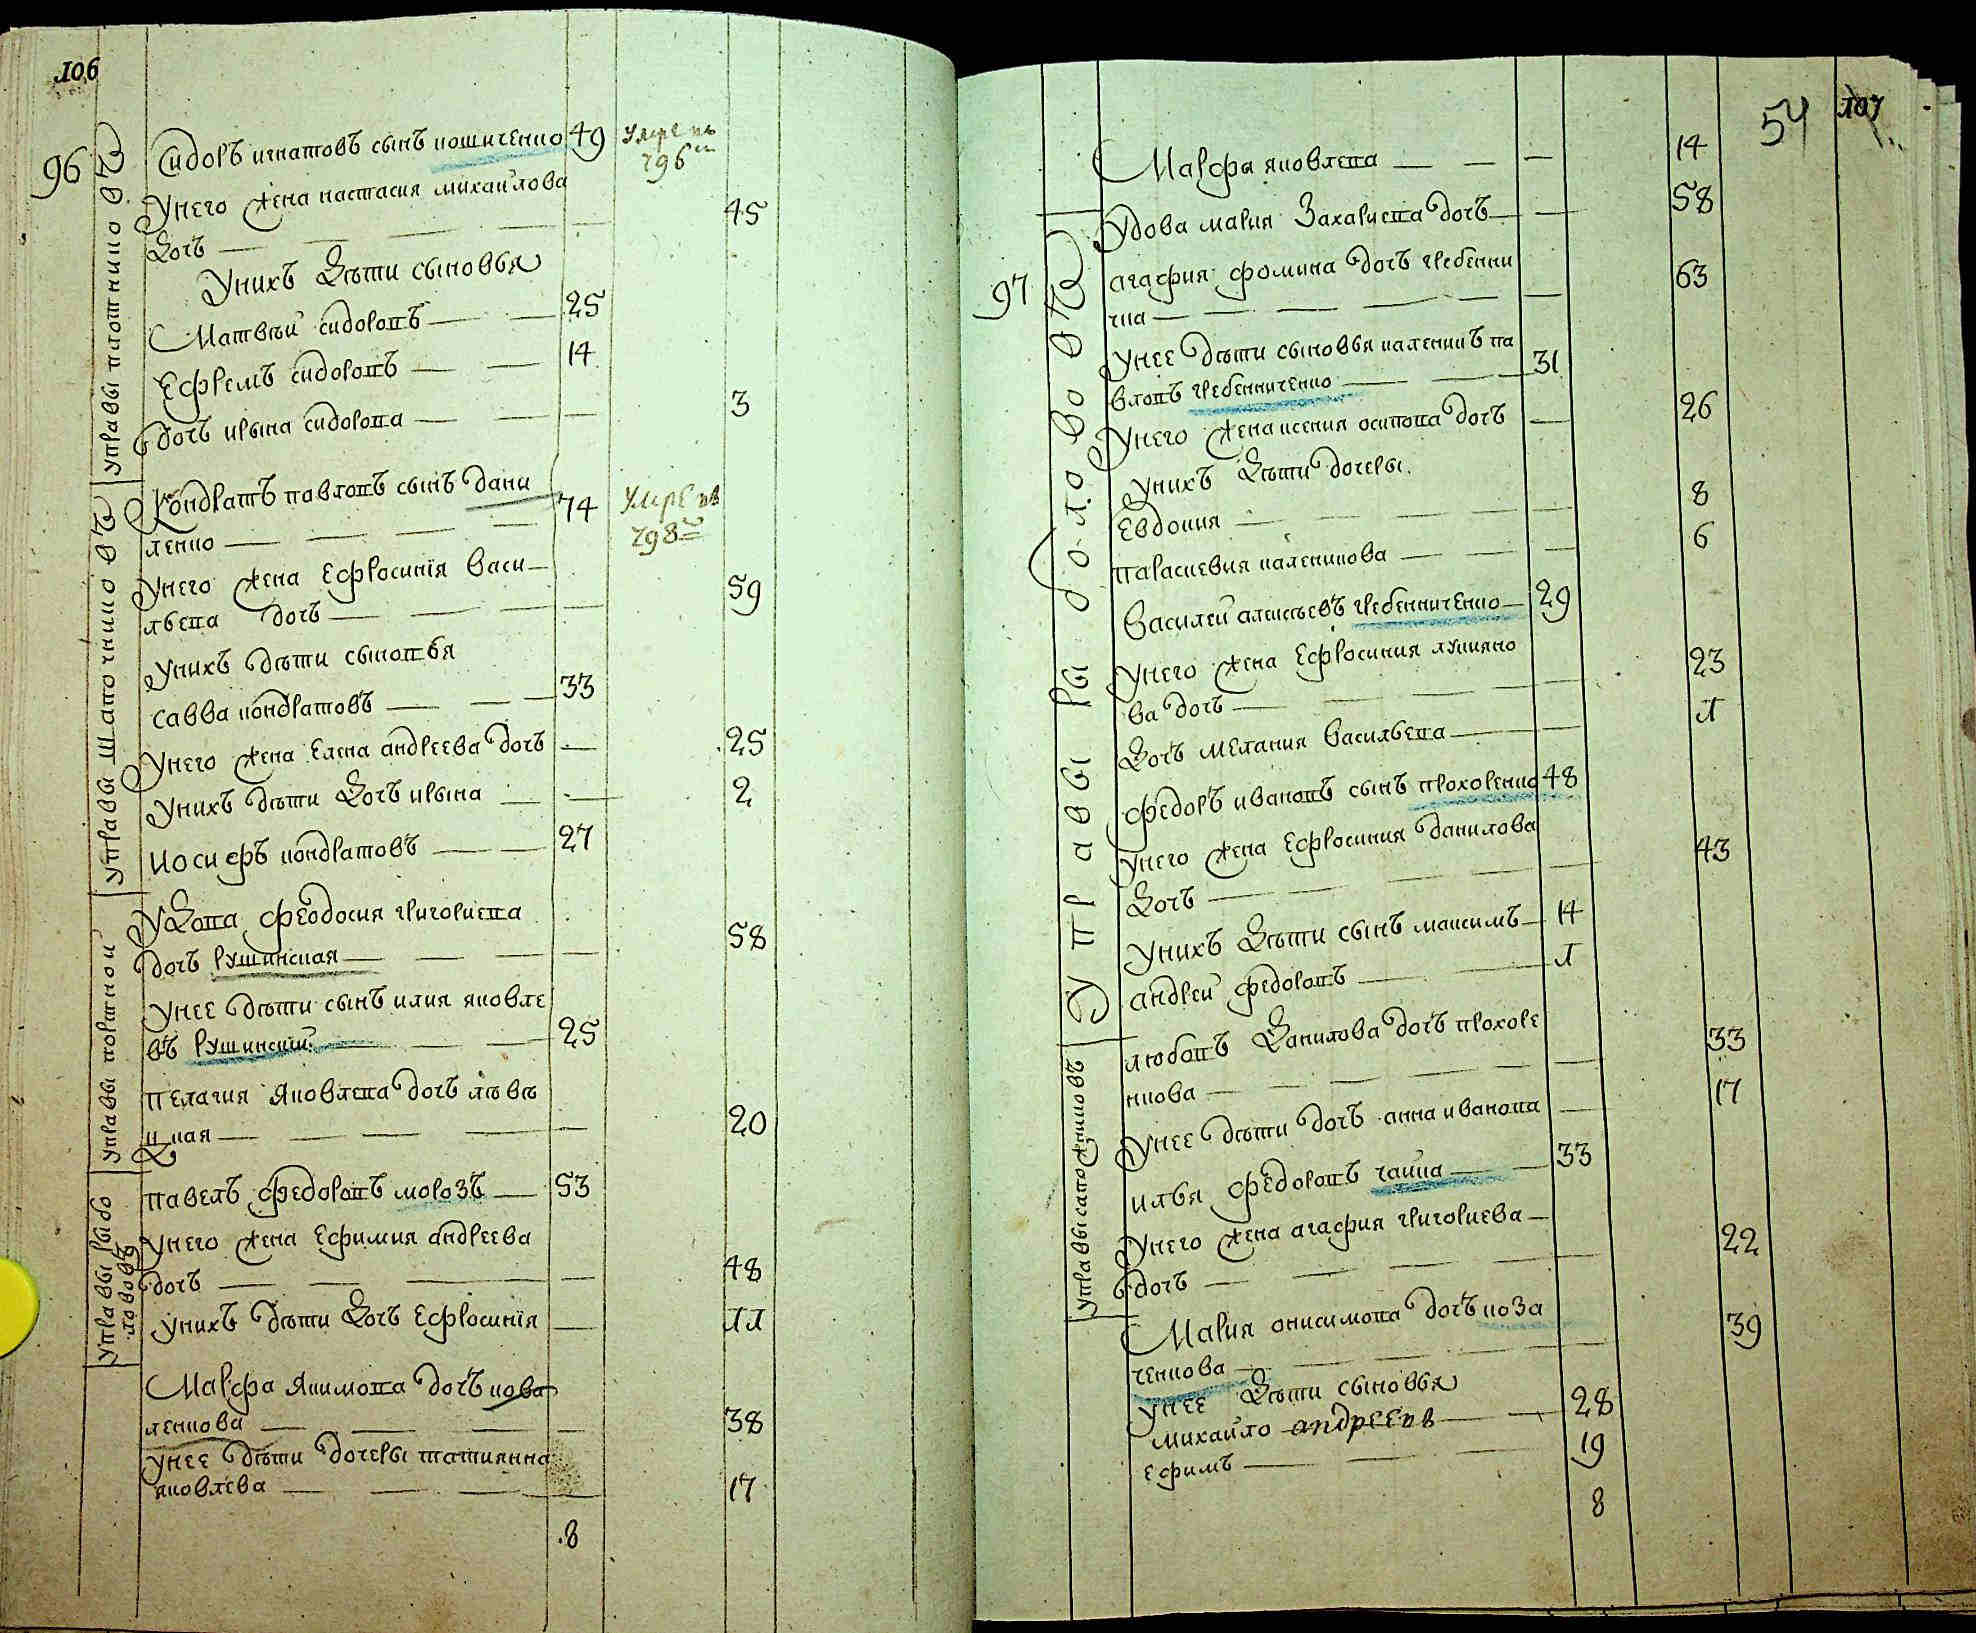 106
96
управы плотницовъ
Сидоръ игнатовъ сынъ кошиченко 49 умре въ
796м
унего жена настасия михайлова
дочъ 45
унихъ дѣти сыновья
Матвѣй сидоровъ 25
Ефремъ сидоровъ 14
дочъ ирына сидорова 3
управы шапочниковъ
Кондратъ павловъ сынъ дани
ленко 74 умре въ
798м
унего жена Ефросинія васи
льева дочъ 59
унихъ дѣти сыновья
савва кондратовъ 33
унего жена Елена андреева дочъ 25
унихъ дѣти дочъ ирына 2
иосифъ кондратовъ 27
управы портной
удова феодосия григориева
дочъ рушинская 58
унее дѣти сынъ илия яковле
въ рушинский 25
пелагия яковлева дочъ
20
управы рыбо
лововъ
павелъ федоровъ морозъ 53
унего жена Ефимия андреева
дочъ 48
унихъ дѣти дочъ Ефросинія 11
Марфа якимова дочъ кова
ленкова 38
унее дѣти дочеры татиянна
яковлева 17
8
107
54
Марфа яковлева 14
удова мария Захариева дочъ 58
97
управы рыболововъ
агафия фомина дочъ гребенни
чка 63
унее дѣти сыновья каленикъ па
вловъ гребенниченко 31
унего жена ксения осипова дочъ 26
унихъ дѣти дочеры
Евдокия 8
параскевия каленикова 6
василей алексѣевъ гребенниченко 29
унего жена Ефросиния лукияно
ва дочъ 23
дочъ мелания васильева 1
федоръ ивановъ сынъ прохоренко 48
унего жена Ефросиния данилова
дочъ 43
унихъ дѣти сынъ максимъ 14
андрей федоровъ 1
любовъ данилова дочъ прохоре
нкова 33
унее дѣти дочъ анна иванова 17
управы сапожниковъ
илья федоровъ чайка 33
унего жена агафия григориева
дочъ 22
Мария онисимова дочъ коза
ченкова 39
унее дѣти сыновья
михайло андреевъ 28
ефимъ 19
8